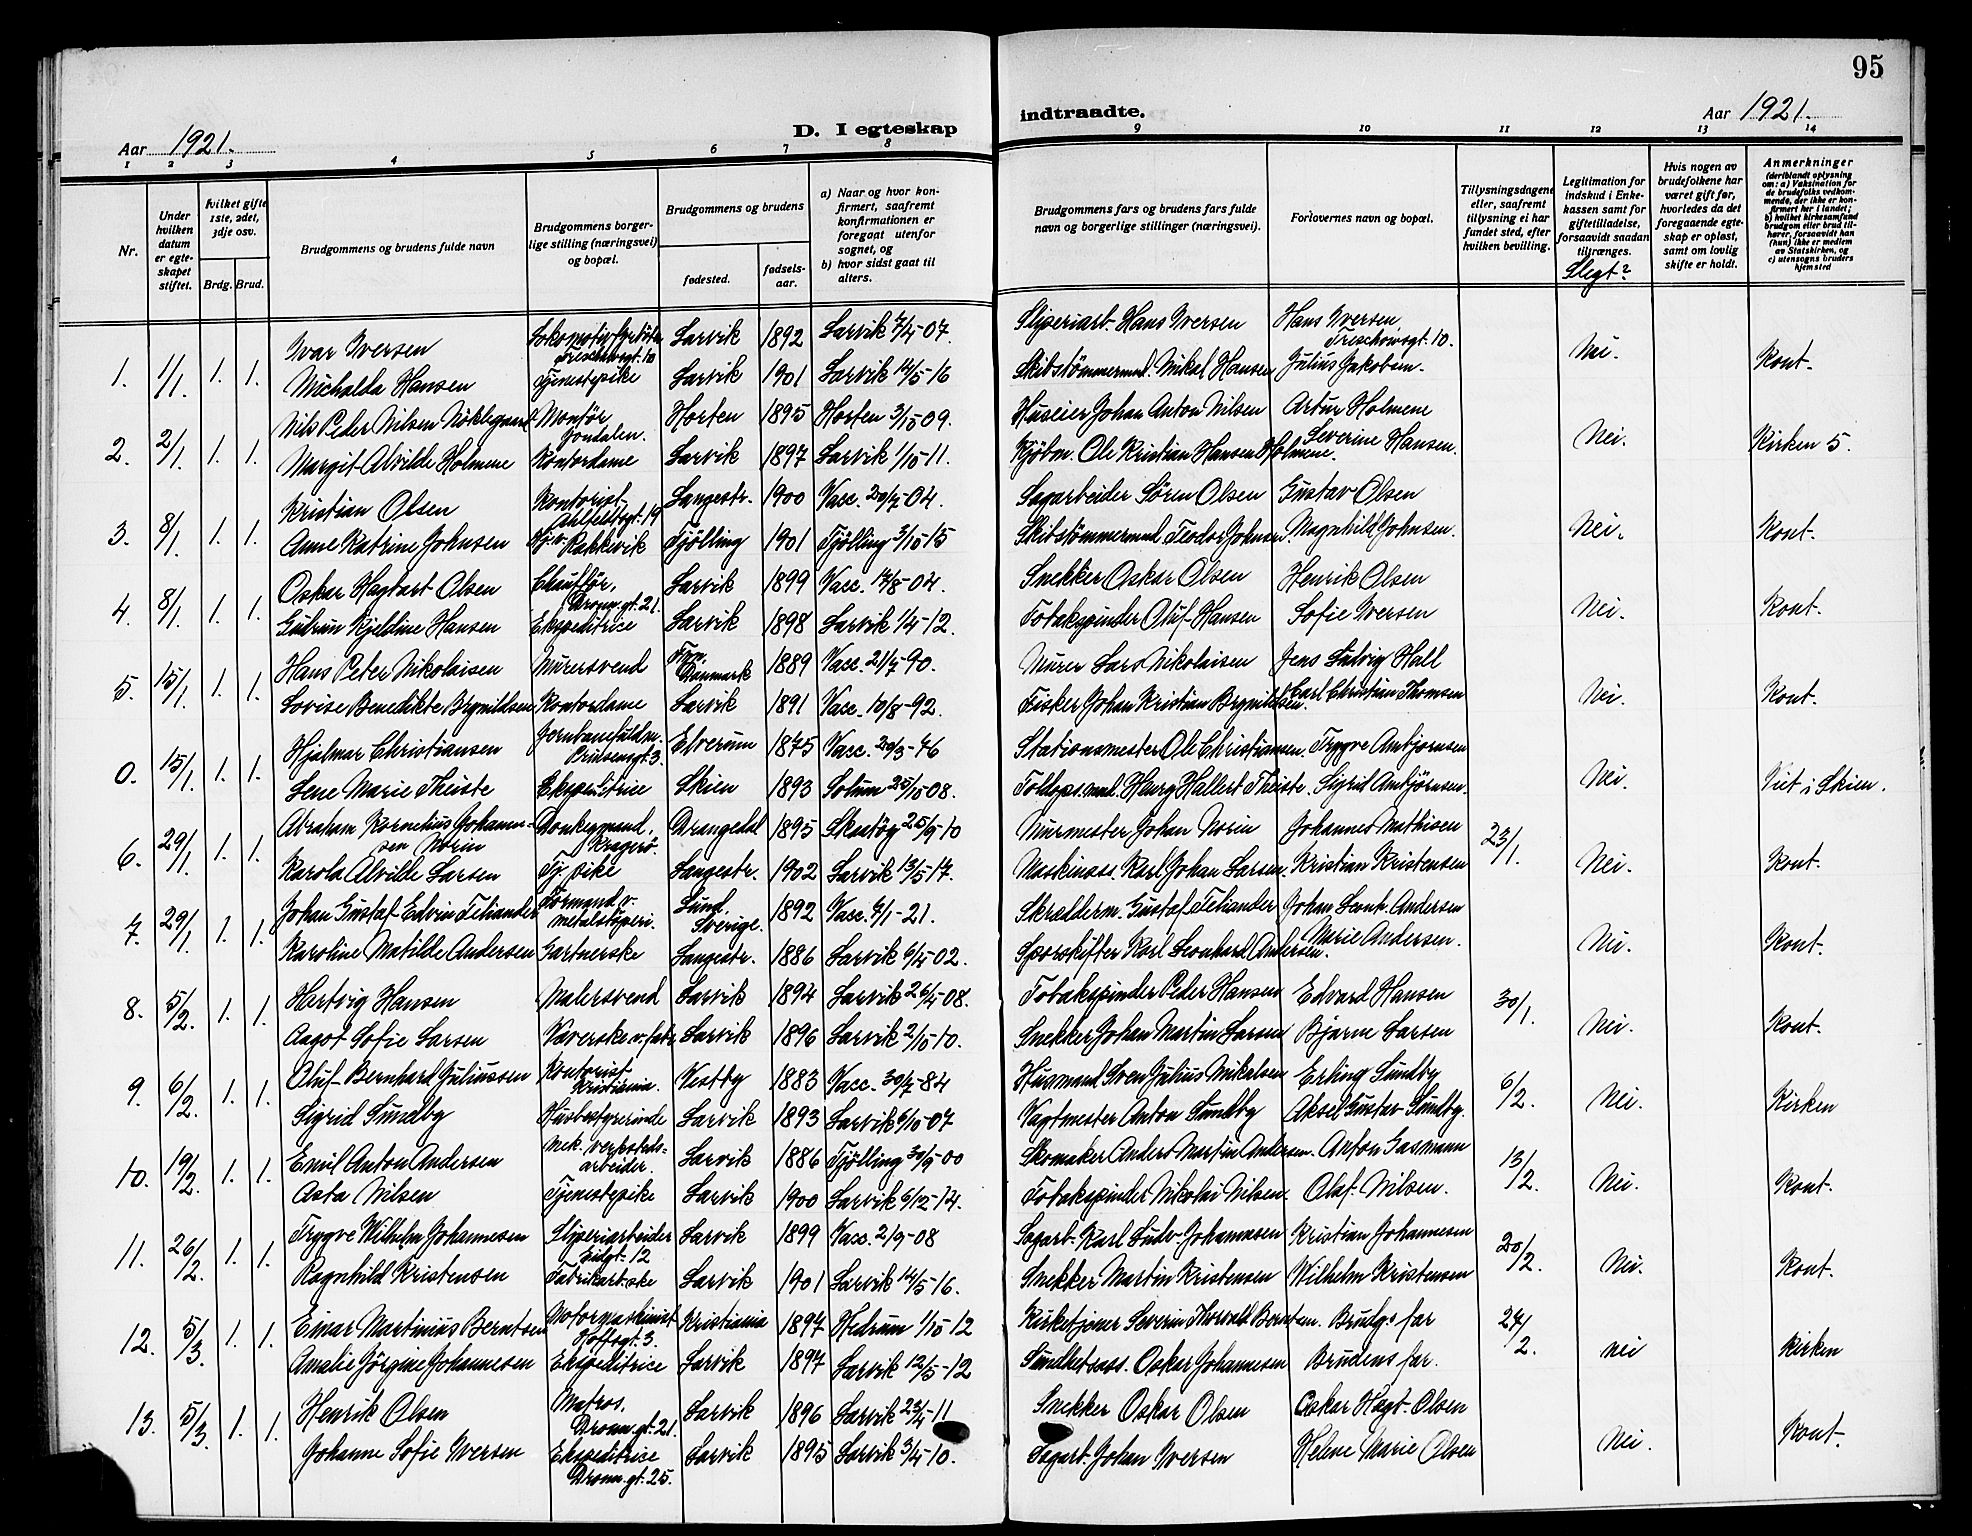 95
Aar 1921.
D. I egteskap
indtraadte.
Aar 1921.
1 2 3 4 5 6 7 8 9 10 11 12 13 14
Nr.
Under hvilken datum er egteskapet stiftet.
hvilket gifte 1ste, 2det, 3dje osv.
Brdg. Brud.
Brudgommens og brudens fulde navn
Brudgommens borgerlige stilling (næringsvei) og bopæl.
Brudgommens og brudens
fødested.
fødselsaar.
a) Naar og hvor konfirmert, saafremt konfirmationen er foregaat utenfor sognet, og
b) hvor sidst gaat til alters.
Brudgommens fars og brudens fars fulde navn og borgerlige stillinger (næringsvei).
Forlovernes navn og bopæl.
Tillysningsdagene eller, saafremt tillysning ei har fundet sted, efter hvilken bevilling.
Legitimation for indskud i Enkekassen samt for giftetilladelse, forsaavidt saadan tiltrænges.
Slegt?
Hvis nogen av brudefolkene har været gift før, hvorledes da det foregaaende egteskap er opløst, samt om lovlig skifte er holdt.
Anmerkninger (deriblandt oplysning om: a) Vaksination for de brudefolks vedkommende, der ikke er konfirmert her i landet; b) hvilket kirkesamfund brudgom eller brud tilhører, forsaavidt han (hun) ikke er medlem av Statskirken, og c) utensogns bruders hjemsted
Ivar Iversen Lokomotivfyrbøter Treschowsgt. 10 Larvik 1892 Larvik 7/4-07. Sliperiarb. Hans Iversen Hans Iversen, Treschowsgt. 10.
1. 1/1 1. 1. Michalda Hansen Tjenestepike Larvik 1901 Larvik 14/5-16 Skibstømmermd. Mikal Hansen Julius Jakobsen. Nei. Kont.
Nils Peder Nilsen Nøklegaard Montør Jondalen. Horten 1895 Horten 3/10 09. Huseier Johan Anton Nilsen Artur Holmene
2. 2/1 1. 1. Margit Alvilde Holmene Kontordame Larvik 1897 Larvik 1/10-11. Kjøbm. Ole Kristian Hansen Holmene. Severine Hansen. Nei. Kirken 5.
Kristian Olsen Kontorist Ahlefeldtsgt. 19 Langestr. 1900 Vacc. 20/7-04. Sagarbeider Søren Olsen Gustav Olsen
3. 8/1 1. 1. Anne Katrine Johnsen Hj.v. Rakkevik Tjølling 1901 Tjølling 3/10-15 Skibstømmermd Teodor Johnsen. Magnhild Johnsen. Nei. Kont.
Oskar Hagbart Olsen Chauffør, Dronn.gt. 21. Larvik 1899 Vacc. 17/8-04. Snekker Oskar Olsen Henrik Olsen
4. 8/1 1. 1. Gudrun Kjeldine Hansen Ekspeditrice Larvik 1898 Larvik 1/4-12. Tobakspinder Oluf Hansen Sofie Iversen Nei. Kont.
Hans Peter Nikolaisen Murersvend Danmark 1889 Vacc. 21/7-90. Murer Lars Nikolaisen Jens Ludvig Hall
5. 15/1 1. 1. Lovise Benedikte Brynildsen Kontordame Larvik 1891 Vacc. 10/8-92. Fisker Johan Kristian Brynildsen. Carl Christian Thomsen Nei. Kont.
Hjalmar Christiansen Jernbanefuldm. Prinsensgt. 3. Elverum 1875 Vacc. 20/3-76 Stationsmester Ole Christiansen. Trygve Anbjørnsen
0. 15/1 1. 1. Lene Marie Theiste Ekspeditrice Skien 1893 Solum 25/10 08. Toldops.mand. Henry Hallert Theiste. Sigrid Anbjørnsen. Nei. Viet i Skien.
Abraham Kornelius Johannessen Norin Donkeymand, Kragerø. Drangedal 1895 Skåtøy 25/9-10 Murmester Johan Norin Johannes Mathisen
6. 29/1 1. 1. Karola Alvilde Larsen Tj. pike Langestr. 1902 Larvik 13/5-17. Maskinass. Karl Johan Larsen Kristian Kristensen 23/1. Nei. Kont.
Johan Gustaf Edvin Teliander Formand v. metalstøperi. Lund, Sverige. 1892 Vacc. 4/1-21. Skrælderm. Gustaf Teliander Johan Leonh. Andersen
7. 29/1 1. 1. Karoline Matilde Andersen Gartnerske Langestr. 1886 Larvik 6/4-02. Sporskifter Karl Leonhard Andersen. Marie Andersen. Nei. Kont.
Hartvig Hansen Malersvend Larvik 1894 Larvik 26/4-08. Tobakspinder Peder Hansen Edvard Hansen
8. 5/2. 1. 1. Aagot Sofie Larsen Væverske v. fabr. Larvik 1896 Larvik 2/10-10. Snekker Johan Martin Larsen Bjarne Larsen 30/1. Nei. Kont.
Oluf Bernhard Juliussen Kontorist Kristiania. Vestby 1883 Vacc. 30/7-84 Husmand Sven Julius Mikalsen Erling Sundby
9. 6/2. 1. 1. Sigrid Sundby Husbestyrerinde Larvik 1893 Larvik 6/10-07 Vagtmester Anton Sundby Aksel Gustav Sundby. 6/2. Nei. Kirken
Emil Anton Andersen Mek. verkstedsarbeider. Larvik 1886 Tjølling 30/9-00 Skomaker Anders Martin Andersen. Anton Gasmann
10. 19/2. 1. 1. Asta Nilsen Tjenestepike Larvik 1900 Larvik 6/12-14. Tobakspinder Nikolai Nilsen. Olaf Nilsen. 13/2. Nei. Kont.
Trygve Wilhelm Johannesen Sliperiarbeider Larvik 1899 Vacc. 2/9-08 Sagarb. Karl Ludv. Johannesen Kristian Johannesen
11. 26/2. 1. 1. Ragnhild Kristensen Fabrikarb.ske Larvik 1901 Larvik 14/5-16. Snekker Martin Kristensen Wilhelm Kristensen 20/2. Nei. Kont.
Einar Martinius Berntsen Motormaskinist Hoffsgt. 3. Kristiania 1897 Hedrum 1/10-12 Kirketjener Severin Thorvald Berntsen. Brudg.s far
12. 5/3. 1. 1. Amalie Jørgine Johannesen Ekspeditrice Larvik 1897 Larvik 12/5-12 Sundhetsass. Oskar Johannesen Brudens far. 27/2. nei Kirken
Henrik Olsen Matros, Dronn.gt. 21. Larvik 1896 Larvik 23/4-11 Snekker Oskar Olsen Oskar Hagb. Olsen
13. 5/3. 1. 1. Johanne Sofie Iversen Ekspeditrice Dronn.gt. 25. Larvik 1895 Larvik 3/4-10. Sagarb. Johan Iversen Helene Marie Olsen Nei. Kont.